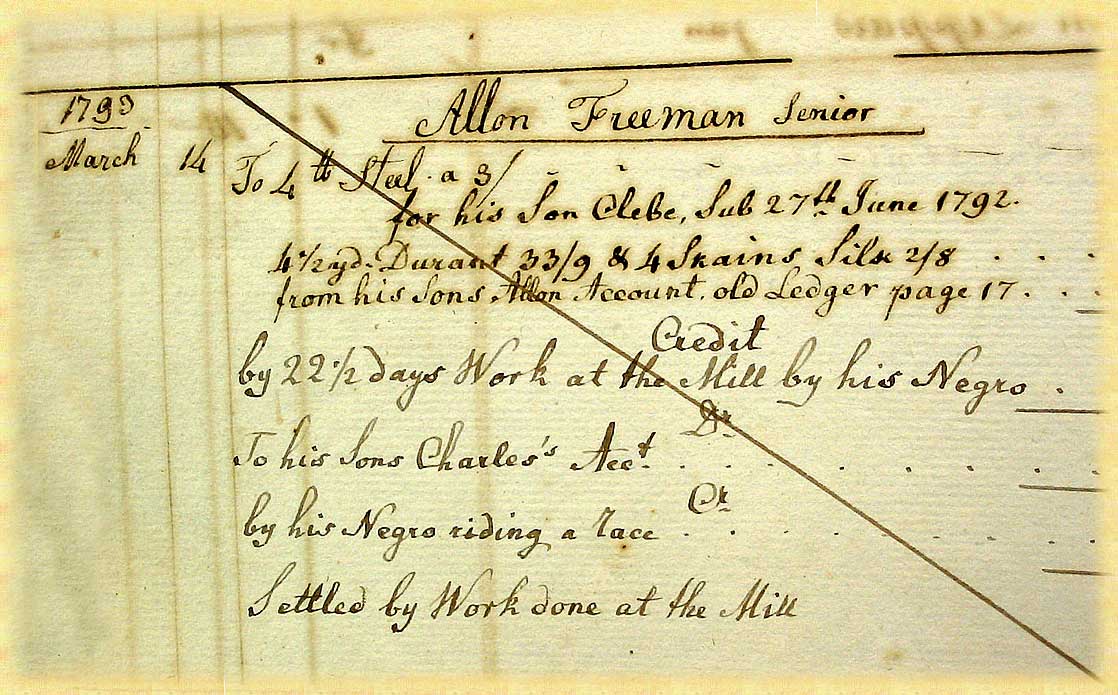 1793
Allon Freeman Senior
March 14 To 4 lb Steel a 3/
for his Son Clebe, Sub 27th June 1792.
4 1/2 yd. Durant 33/9 & 4 Skains Silk 2/8 . . .
from his Sons Allon Account, old Ledger page 17 . . .
Credit
by 22 1/2 days Work at the Mill by his Negro .
Dr
To his Sons Charles's Acct. . . . . . . .
Cr
by his Negro riding a race . . . . . . .
Settled by Work done at the Mill